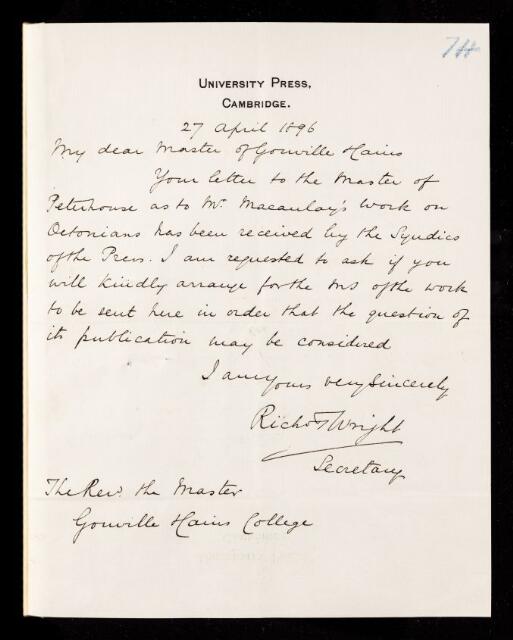 7H
UNIVERSITY PRESS,
CAMBRIDGE.
27 April 1896
My dear Master of Gonville & Caius
Your letter to the Master of
Peterhouse as to Mr Macaulay's work on
Octonians has been received by the Syndics
of the Press. I am requested to ask if you
will kindly arrange for the MS of the work
to be sent here in order that the question of
its publication may be considered
I am yours very sincerely
Richd T Wright
Secretary
The Revd. the Master
Gonville & Caius College